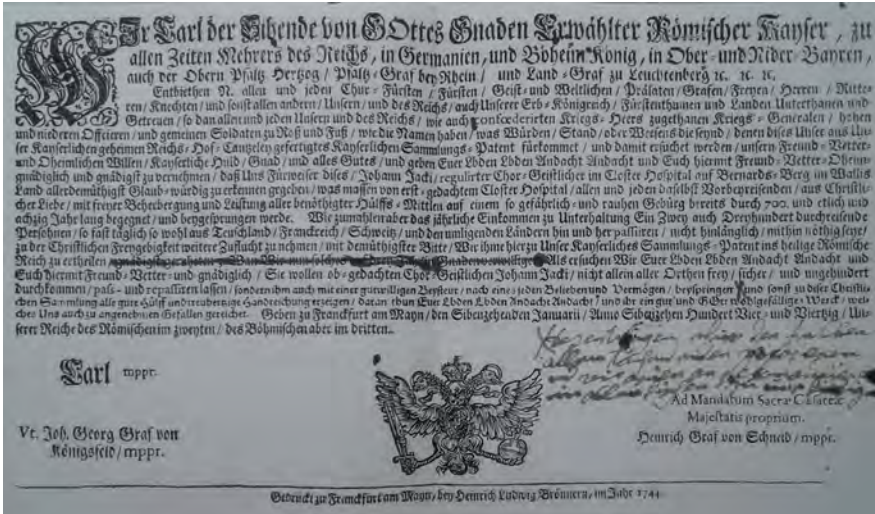 WIr Carl der Sibende von GOttes Gnaden Erwählter Römischer Kayser, zu
allen Zeiten Mehrers des Reichs, in Germanien, und Böheim König, in Ober- und Nider-Bayren,
auch der Obern Pfaltz Hertzog / Pfaltz-Graf bey Rhein / und Land-Graf zu Leuchtenberg ꝛc. ꝛc. ꝛc.
Entbiethen N. allen und jeden Chur-Fürsten / Fürsten / Geist- und Weltlichen / Prälaten / Grafen / Freyen / Herren / Ritte-
ren / Knechten / und sonst allen andern / Unsern / und des Reichs / auch Unserer Erb-Königreich / Fürstenthumen und Landen Unterthanen und
Getreuen / so dan allen und jeden Unsern und des Reichs / wie auch confoederirten Kriegs-Heers zugethanen Kriegs-Generalen / hohen
und niederen Officieren / und gemeinen Soldaten zu Roß und Fuß / wie die Namen haben / was Würden / Stand / oder Weesens die seynd / denen dises Unser aus Un-
ser Kayserlichen geheimen Reichs-Hof-Cantzeley gefertigtes Kayserlichen Sammlungs-Patent fürkommet / und damit ersucht werden / unsern Freund-Vetter-
und Oheimlichen Willen / Kayserliche Huld / Gnad / und alles Gutes / und geben Euer Lbden Lbden Andacht Andacht und Euch hiermit Freund-Vetter-Oheim-
gnädiglich und gnädigst zu vernehmen / daß Uns Fürweiser dises / Johann Jacki / regulirter Chor-Geistlicher im Closter Hospital auf Bernards-Berg im Wallis
Land allerdemüthigst Glaub-würdig zu erkennen gegeben / was massen von erst-gedachtem Closter Hospital / allen und jeden daselbst Vorbeyreisenden / aus Christli-
cher Liebe / mit freyer Beherbergung und Leistung aller benöthigter Hülffs-Mittlen auf einem so gefährlich- und rauhen Gebürg bereits durch 700. und etlich und
achzig Jahr lang begegnet / und beygesprungen werde. Wie zumahlen aber das jährliche Einkommen zu Unterhaltung Ein Zwey auch Dreyhundert durchreisende
Persohnen / so fast täglich so wohl aus Teuschland / Franckreich / Schweitz / und den umligenden Ländern hin und her passiren / nicht hinlänglich / mithin nöthig seye /
zu der Christlichen Freygebigkeit weitere Zuflucht zu nehmen / mit demüthigster Bitte / Wir ihme hierzu Unser Kayserliches Sammlungs-Patent ins heilige Römische
Reich zu ertheilen Als ersuchen Wir Euer Lbden Lbden Andacht Andacht und
Euch hiermit Freund-Vetter- und gnädiglich / Sie wollen ob-gedachten Chor-Geistlichen Johann Jacki / nicht allein aller Orthen frey / sicher / und ungehindert
durchkommen / pass- und repassiren lassen / sondern ihm auch mit einer gutwilligen Beysteur / nach eines jeden Belieben und Vermögen / beyspringen / und sonst zu diser Christli-
chen Sammlung alle gute Hülff und Handreichung erzeigen / daran thun Euer Lbden Lbden Andacht Andacht / und ihr ein gut und GOtt wohlgefälliges Werck / wel-
ches Uns auch zu angenehmen Gefallen gereichet. Geben zu Franckfurt am Mayn / den Sibenzehenden Januarii / Anno Sibenzehen Hundert Vier- und Viertzig / Un-
serer Reiche des Römischen im zweyten / des Böhmischen aber im dritten.
Carl mppr.
Ad Mandatum Sacræ Cæsareæ
Majestatis proprium.
Vt. Joh. Georg Graf von
Königsfeld / mppr.
Heinrich Graf von Schneid / mppr.
Gedruckt zu Franckfurt am Mayn, bey Heinrich Ludwig Brönnern, im Jahr 1744